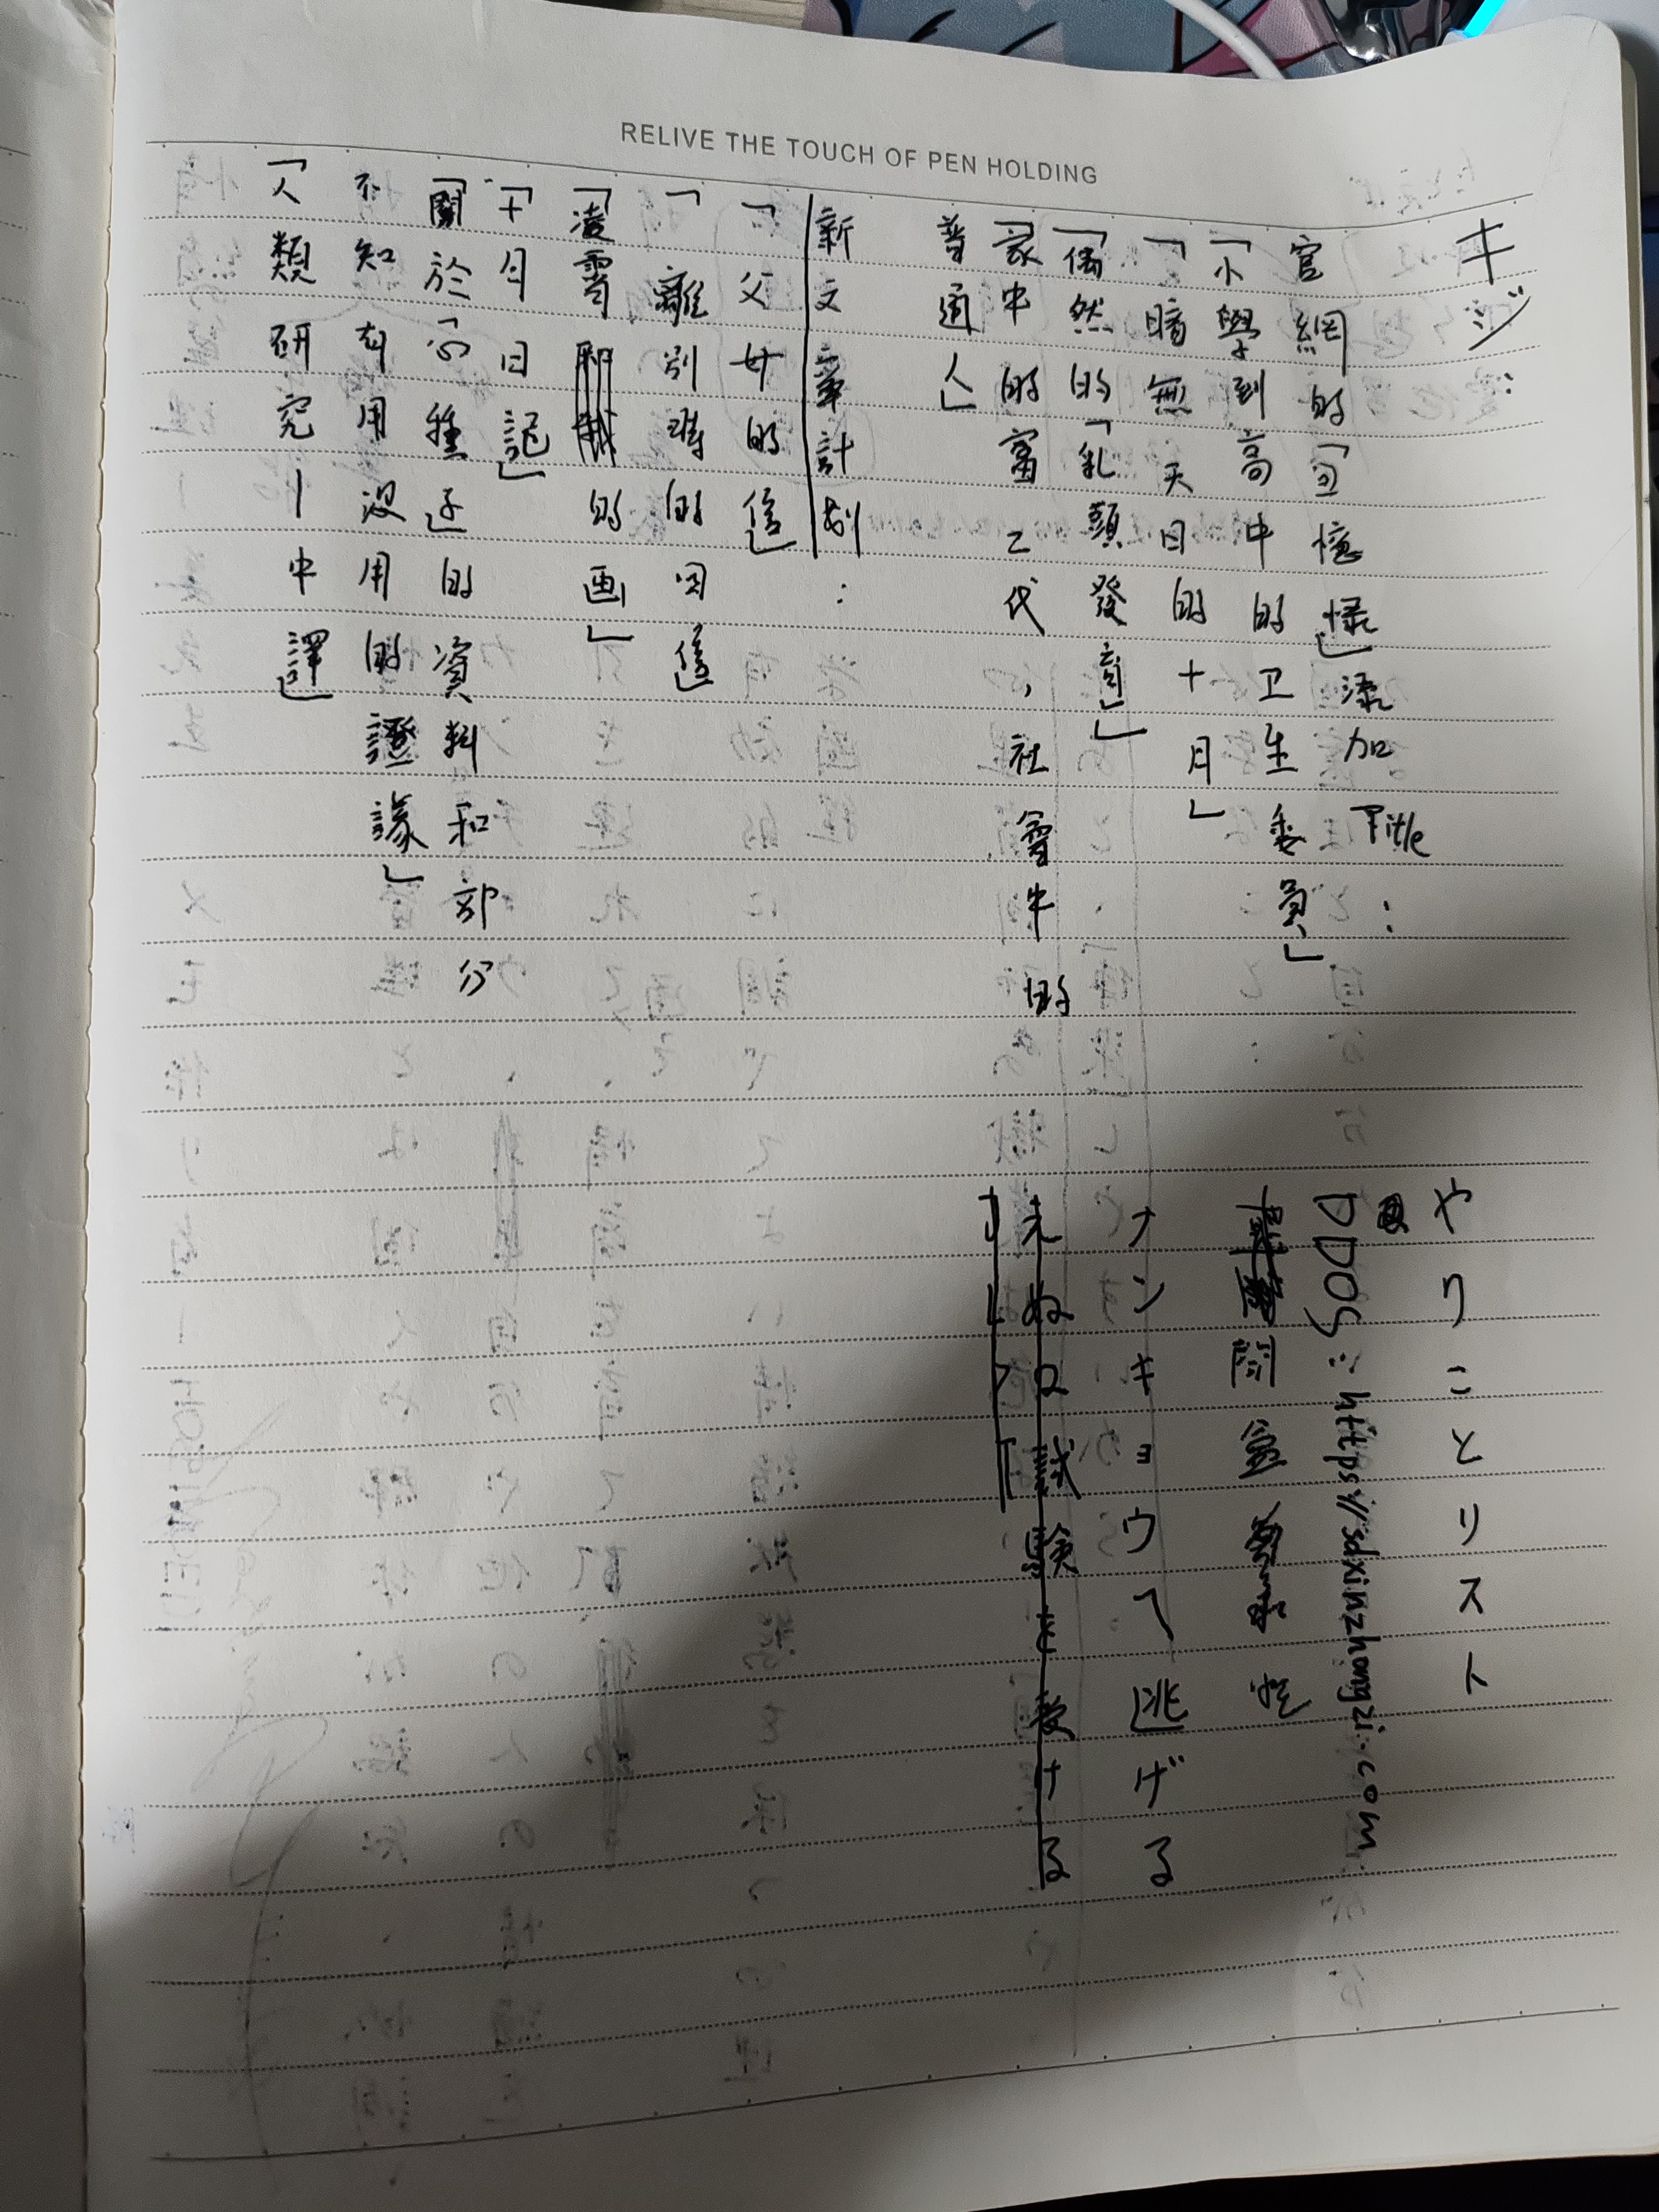 RELIVE THE TOUCH OF PEN HOLDING
キジ：
官網的「回憶録」添加Title：
「小學到高中的卫生委員」
「暗無天日的十月」
「偶然的「乳頭發育」」
「家中的富二代，社會牛的
普通人」
新文章計划：
「父女的信」
「離別時的回信
「凌霄 的画」
「十月日記」
「關於「心種还的資料和部分
不知有用没用的證據」
「人類研究—中譯」
やりことリスト
DDOS：https://sdxinzhongzi.com
問金
ナンキョウへ逃げる
えぬロ試験を受ける